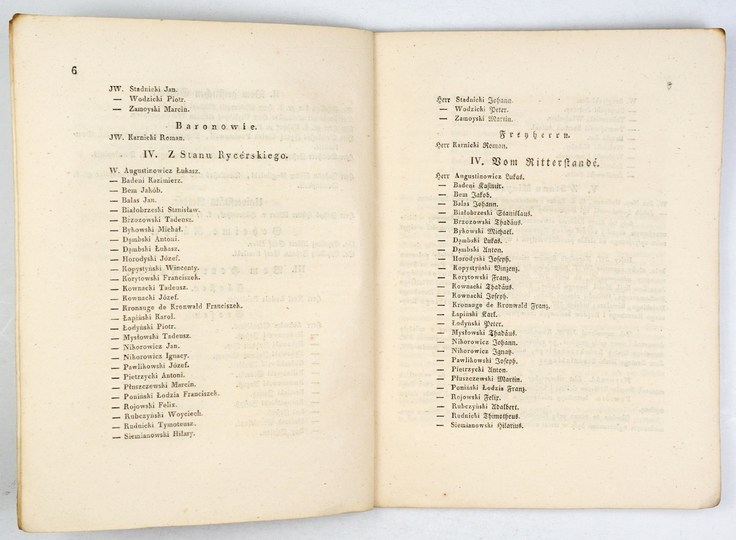 6
JW. Stadnicki Jan.
— Wodzicki Piotr.
— Zamoyski Marcin.
Baronowie.
JW. Karnicki Roman.
IV. Z Stanu Rycérskiego.
W. Augustinowicz Łukasz.
— Badeni Kazimierz.
— Bem Jakób.
— Balas Jan.
— Białobrzeski Stanisław.
— Brzozowski Tadeusz.
— Bykowski Michał.
— Dymbski Antoni.
— Dymbski Łukasz.
— Horodyski Józef.
— Kopystyński Wincenty.
— Korytowski Franciszek.
— Kownacki Tadeusz.
— Kownacki Józef.
— Kronauge de Kronwald Franciszek.
— Łapiński Karol.
— Łodyński Piotr.
— Mysłowski Tadeusz.
— Nikorowicz Jan.
— Nikorowicz Ignacy.
— Pawlikowski Józef.
— Pietrzycki Antoni.
— Płuszczewski Marcin.
— Poniński Łodzia Franciszek.
— Rojowski Felix.
— Rubczyński Woyciech.
— Rudnicki Tymoteusz.
— Siemianowski Hilary.
Herr Stadnicki Johann.
— Wodzicki Peter.
— Zamoyski Martin.
Freyherrn.
Herr Karnicki Roman.
IV. Vom Ritterstande.
Herr Augustinowicz Lukas.
— Badeni Kasimir.
— Bem Jakob.
— Balas Johann.
— Białobrzeski Stanislaus.
— Brzozowski Thadäus.
— Bykowski Michael.
— Dymbski Lukas.
— Dymbski Anton.
— Horodyski Joseph.
— Kopystyński Vinzenz.
— Korytowski Franz.
— Kownacki Thadäus.
— Kownacki Joseph.
— Kronauge de Kronwald Franz.
— Łapiński Karl.
— Łodyński Peter.
— Mysłowski Thadäus.
— Nikorowicz Johann.
— Nikorowicz Ignatz.
— Pawlikowski Joseph.
— Pietrzycki Anton.
— Płuszczewski Martin.
— Poniński Łodzia Franz.
— Rojowski Felix.
— Rubczyński Adalbert.
— Rudnicki Thimotheus.
— Siemianowski Hilarius.